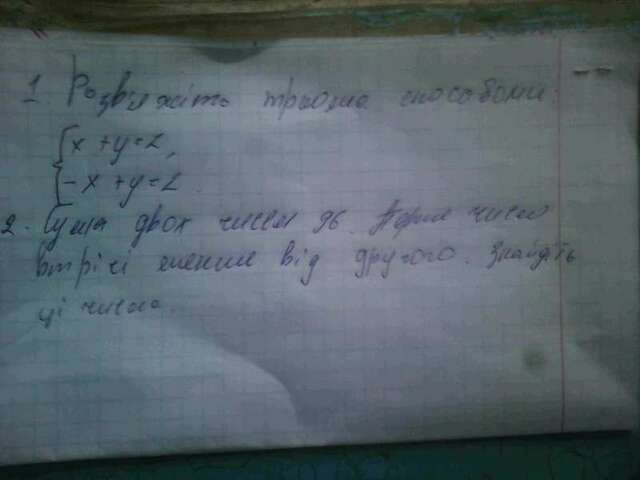 1. Розв'яжіть трьома способами
x + y = 2,
- x + y = 2.
2. Сума двох чисел 96. Перше число
втричі менше від другого. Знайдіть
ці числа.